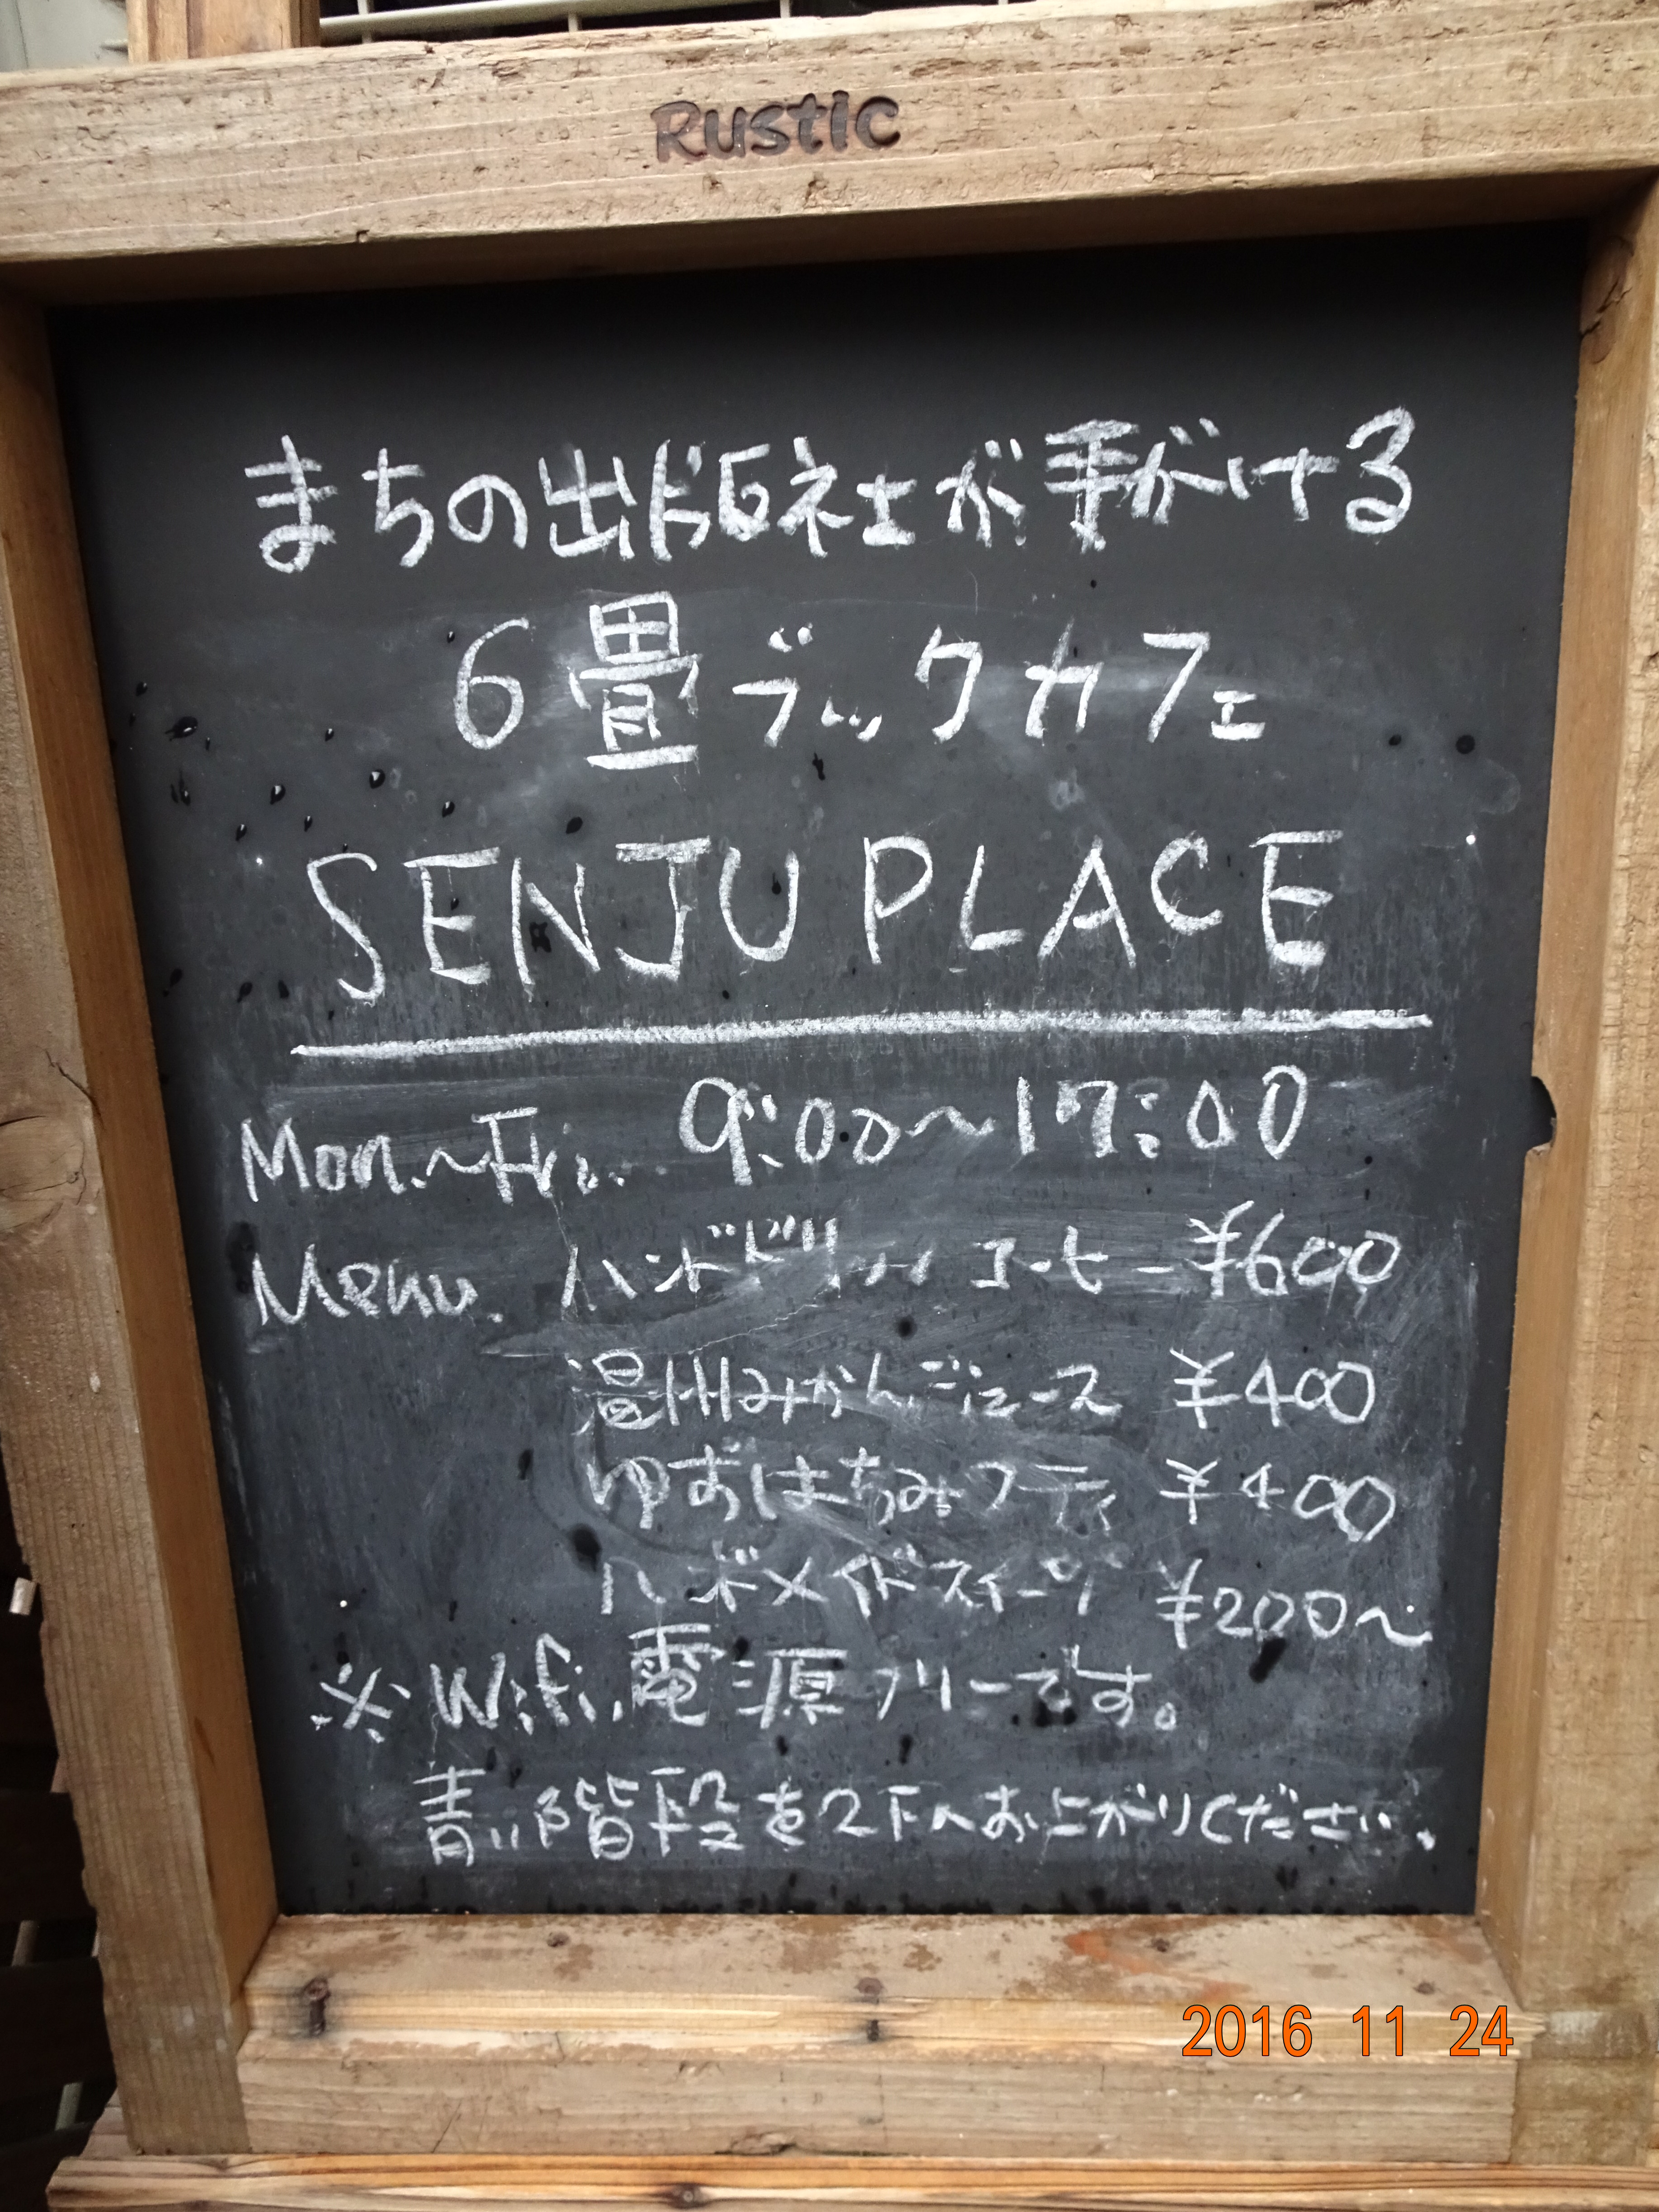 Rustic
まちの出版社が手がける
6畳ブックカフェ
SENJU PLACE
Mon.~Fri. 9:00~17:00
Menu. ハンドドリップコーヒー ¥600
温州みかんジュース ¥400
ゆずはちみつティ ¥400
ハンドメイドスイーツ ¥200~
※Wifi,電源フリーです。
青い階段を2Fへお上がりください.
2016 11 24